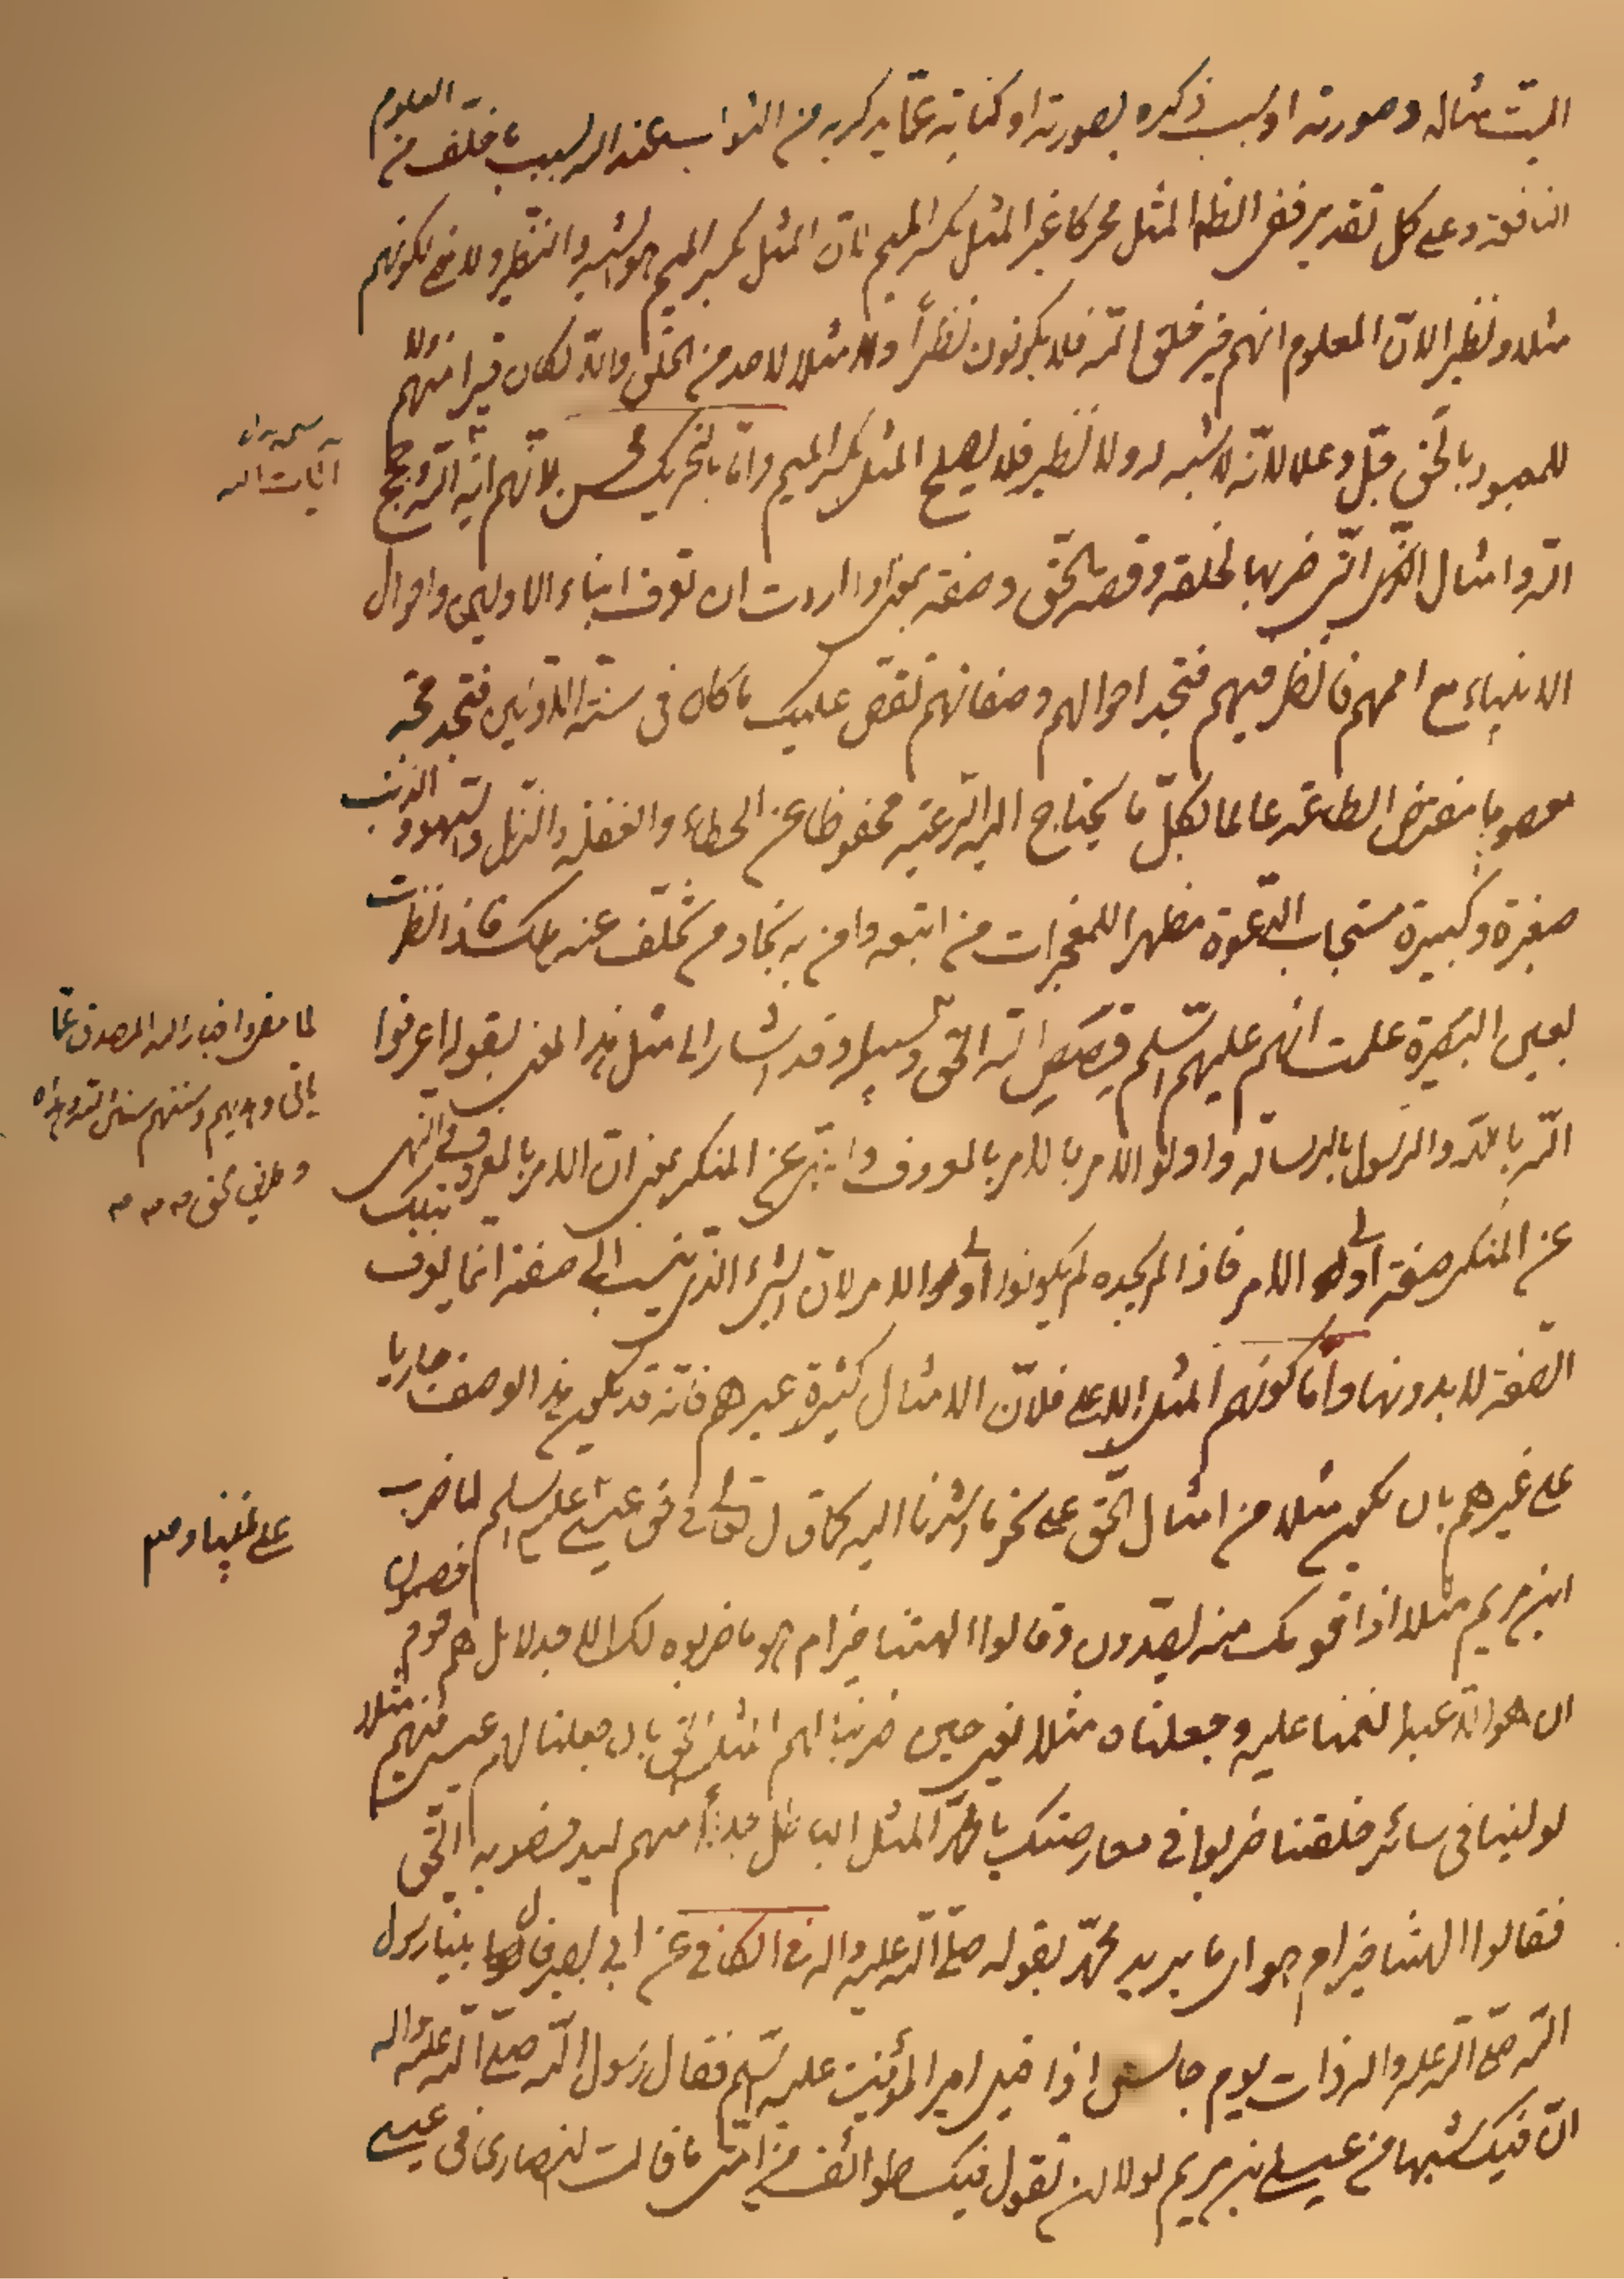 الميت مثاله وصورته او لسبب ذكره بصورته او كناية عما يذكر به من الثواب عند الله لسبب ما خلف من العلوم
النافعة وعلى كل تقدير ففي الظاهر المثل محركا غير المثل بكسر الميم لان المثل بكسر الميم هو الشبيه والنظير ولا معنى لكونهم
مثلا ونظيرا لان المعلوم انهم خير خلق الله فلا يكونون نظيرا ولا مثلا لاحد من الخلق والا لكان خيرا منهم ولا
للمعبود بالحق جل وعلا لانه لا شبيه له ولا نظير فلا يصلح المثل بكسر الميم واما بالتحريك فحسن لانهم اية الله وحجج
آيات الله
الله وامثال الحق التي ضربها لخلقه وقصة الحق وصفته بمعنى اذا اردت ان تعرف انباء الاولين واحوال
الانبياء مع اممهم فانظر فيهم فتجد احوالهم وصفاتهم تقص عليك ما كان في سنة الاولين فتجد حجة
معصوما مفترض الطاعة عالما بكل ما يحتاج اليه الرعية محفوظا عن الخطاء والغفلة والزلل والسهو والذنب
صغيرة وكبيرة مستجاب الدعوة مظهرا للمعجزات من اتبعه وامن به نجا ومن تخلف عنه هلك فاذا نظرت
بعين البصيرة علمت انهم عليهم السلام قصص الله الحق وسبيله وقد اشار الى مثل هذا المعنى بقوله اعرفوا
الله بالله والرسول بالرسالة واولوا الامر بالامر بالمعروف والنهي عن المنكر يعني ان الامر بالمعروف والنهي
عن المنكر صفة اولي الامر فاذا لم يجده لم يكونوا اولي الامر لان الشيء الذي ينسب الى صفة انما يعرف بتلك
الصفة لا بدونها واما كونهم المثل الاعلى فلان الامثال كثيرة غيرهم فانه قد يكون هذا الوصف جاريا
على غيرهم بان يكون مثلا من امثال الحق على نحو ما اشرنا اليه كما قال تعالى في حق عيسى عليه السلم لما ضرب
ابن مريم مثلا اذا قومك منه يصدون وقالوا الهتنا خير ام هو ما ضربوه لك الا جدلا بل هم قوم خصمون
ان هو الا عبد انعمنا عليه وجعلناه مثلا يعني حين ضربنا لهم المثل الحق بان جعلنا لهم عيسى منهم مثلا
في سائر خلقنا ضربوا في معارضتك يا محمد المثل الباطل جدلا منهم ليدحضوا به الحق
فقالوا الهتنا خير ام هو اي ما يريد محمد بقوله صلى الله عليه واله في الكافي عن ابي بصير قال بينا رسول
الله صلى الله عليه واله ذات يوم جالس اذا قبل امير المؤمنين عليه السلم فقال رسول الله صلى الله عليه واله
ان فيك شبها من عيسى بن مريم لولا ان تقول فيك طوائف من امتي ما قالت النصارى في عيسى